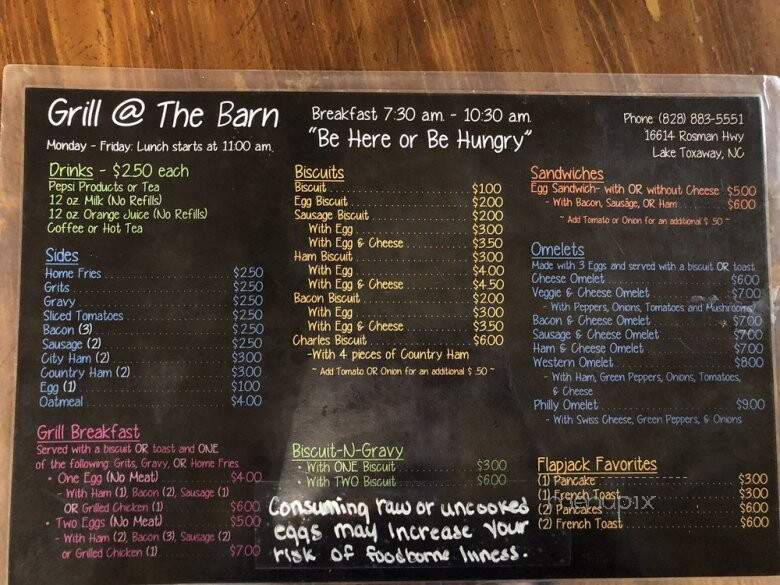 Grill @ The Barn
Monday - Friday: Lunch starts at 11:00 am.
Breakfast 7:30 am. - 10:30 am.
"Be Here or Be Hungry"
Phone: (828) 883-5551
16614 Rosman Hwy
Lake Toxaway, NC
Drinks - $2.50 each
Pepsi Products or Tea
12 oz. Milk (No Refills)
12 oz. Orange Juice (No Refills)
Coffee or Hot Tea
Sides
Home Fries $2.50
Grits $2.50
Gravy $2.50
Sliced Tomatoes $2.50
Bacon (3) $2.50
Sausage (2) $2.50
City Ham (2) $3.00
Country Ham (2) $3.00
Egg (1) $1.00
Oatmeal $4.00
Grill Breakfast
Served with a biscuit OR toast and ONE
of the following: Grits, Gravy, OR Home Fries
• One Egg (No Meat) $4.00
- With Ham (1), Bacon (2), Sausage (1)
OR Grilled Chicken (1) $6.00
• Two Eggs (No Meat) $5.00
- With Ham (2), Bacon (3), Sausage (2)
or Grilled Chicken (1) $7.00
Biscuits
Biscuit $1.00
Egg Biscuit $2.00
Sausage Biscuit $2.00
With Egg $3.00
With Egg & Cheese $3.50
Ham Biscuit $3.00
With Egg $4.00
With Egg & Cheese $4.50
Bacon Biscuit $2.00
With Egg $3.00
With Egg & Cheese $3.50
Charles Biscuit $6.00
-With 4 pieces of Country Ham
~ Add Tomato OR Onion for an additional $ .50 ~
Biscuit-N-Gravy
- With ONE Biscuit $3.00
- With TWO Biscuit $6.00
Consuming raw or uncooked
eggs may increase your
risk of foodborne Inness.
Sandwiches
Egg Sandwich- with OR without Cheese $5.00
- With Bacon, Sausage, OR Ham $6.00
~ Add Tomato or Onion for an additional $ .50 ~
Omelets
Made with 3 Eggs and served with a biscuit OR toast
Cheese Omelet $6.00
Veggie & Cheese Omelet $7.00
- With Peppers, Onions, Tomatoes and Mushrooms
Bacon & Cheese Omelet $7.00
Sausage & Cheese Omelet $7.00
Ham & Cheese Omelet $7.00
Western Omelet $8.00
- With Ham, Green Peppers, Onions, Tomatoes,
& Cheese
Philly Omelet $9.00
- With Swiss Cheese, Green Peppers, & Onions
Flapjack Favorites
(1) Pancake $3.00
(1) French Toast $3.00
(2) Pancakes $6.00
(2) French Toast $6.00
menupix